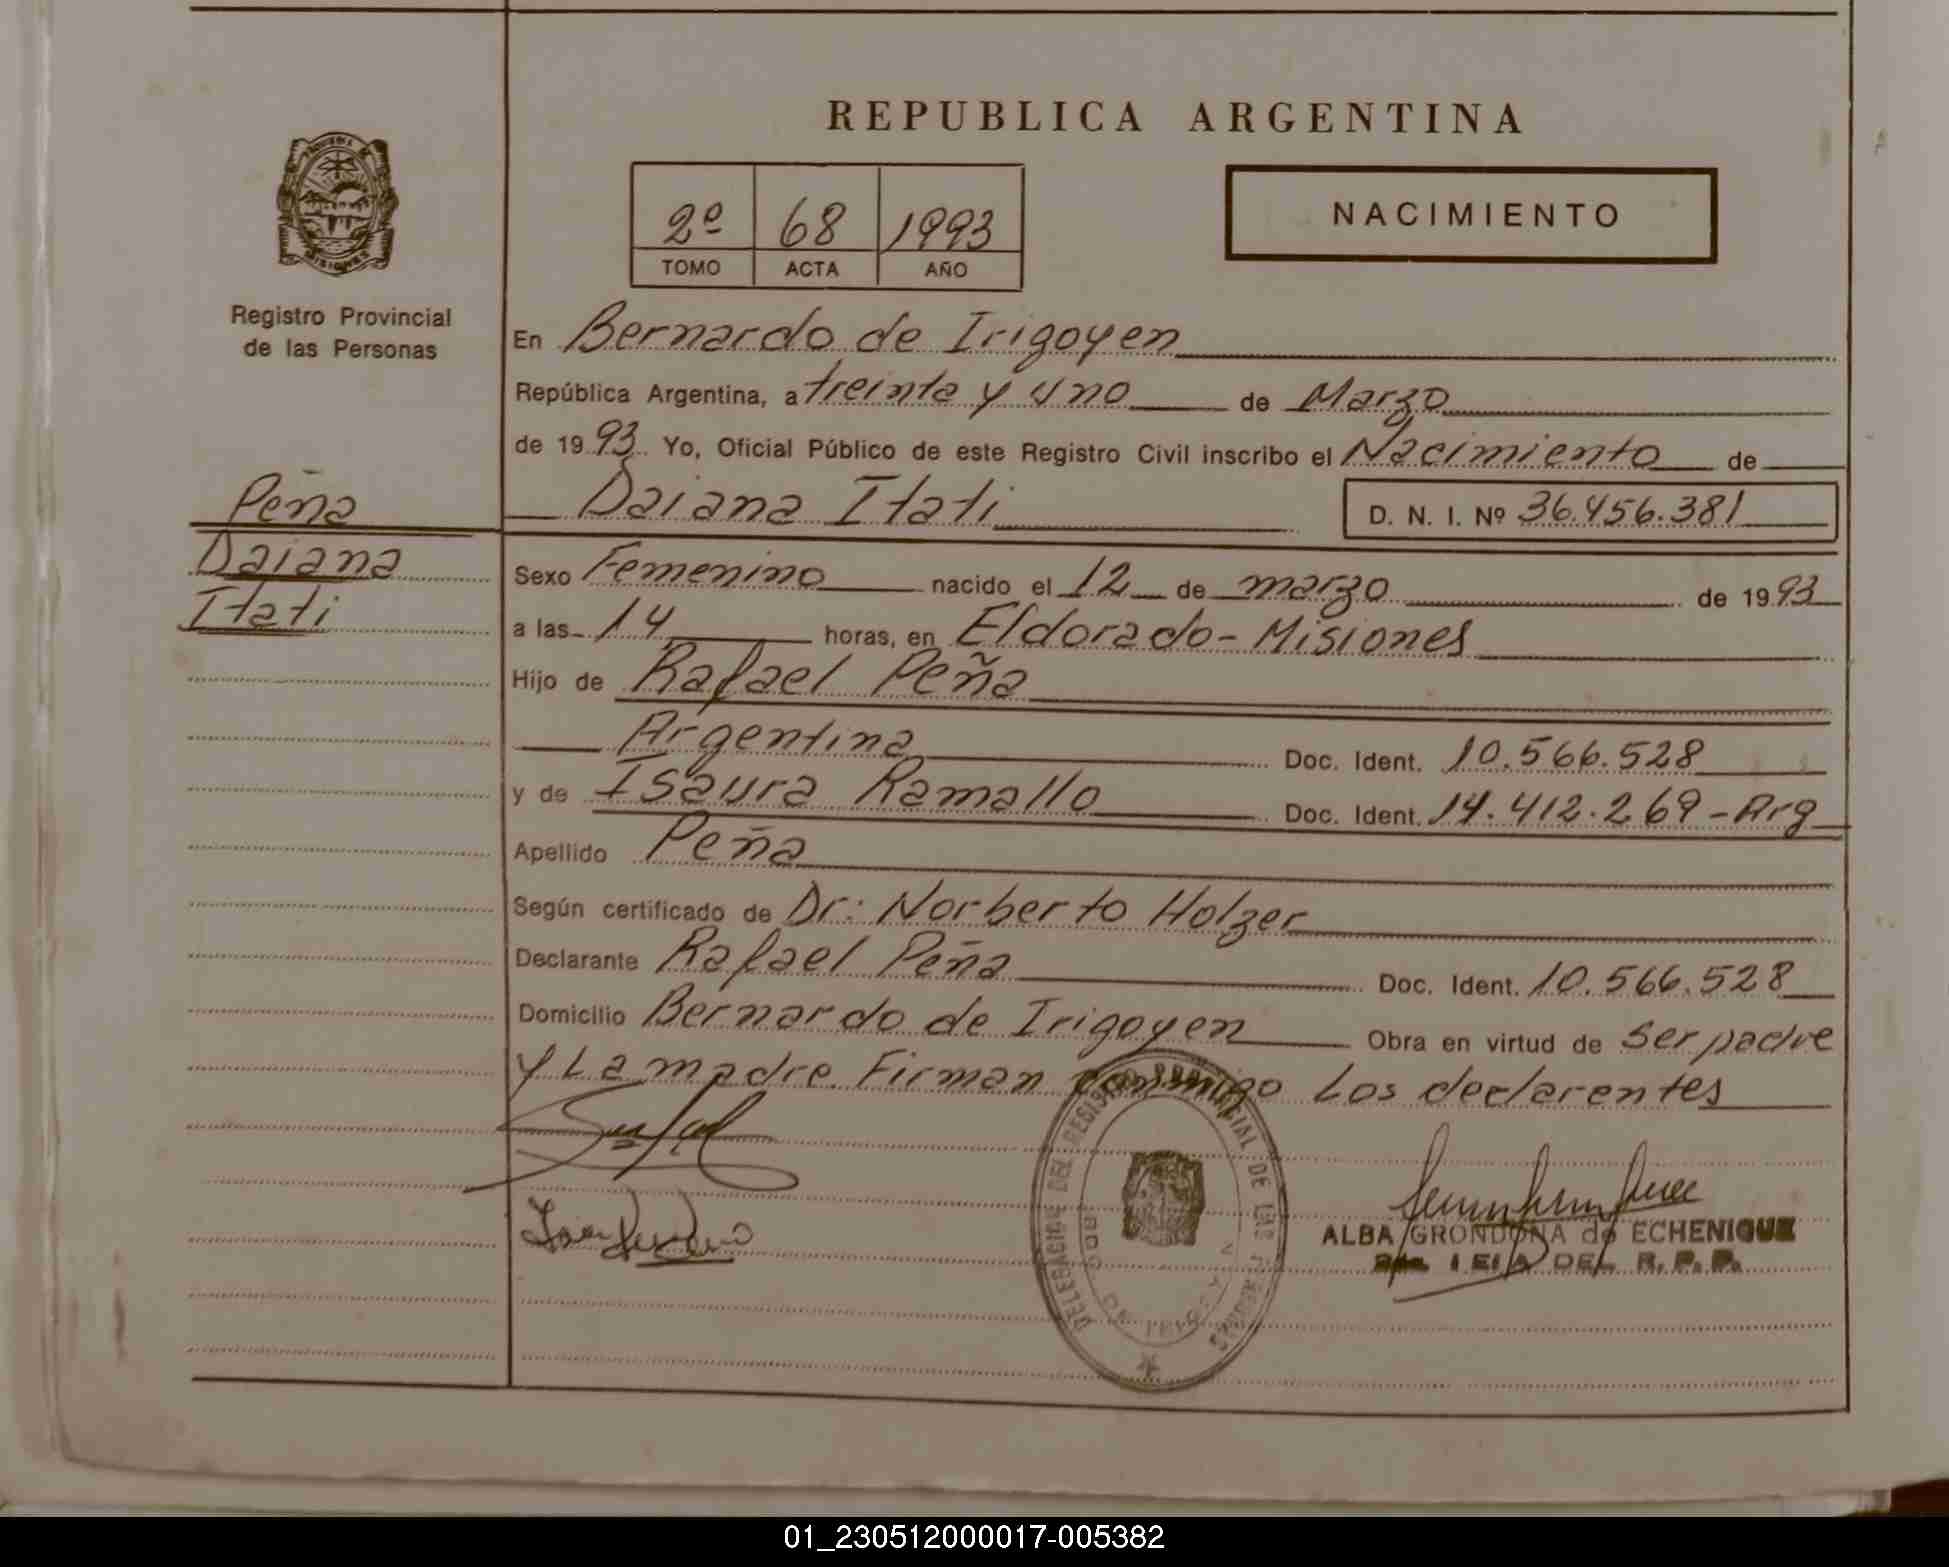 REPUBLICA ARGENTINA
PROVINCIA DE
MISIONES
2º 68 1993
TOMO ACTA AÑO
NACIMIENTO
Registro Provincial
de las Personas
En Bernardo de Irigoyen
República Argentina, a treinta y uno de Marzo
de 1993. Yo, Oficial Público de este Registro Civil inscribo el Nacimiento de
Daiana Itati D. N. I. Nº 36.456.381
Peña
Daiana
Itati
Sexo Femenino nacido el 12 de marzo de 1993
a las 14 horas, en Eldorado - Misiones
Hijo de Rafael Peña
Argentina Doc. Ident. 10.566.528
y de Isaura Ramallo Doc. Ident. 14.412.269 - Arg
Apellido Peña
Según certificado de Dr: Norberto Holzer
Declarante Rafael Peña Doc. Ident. 10.566.528
Domicilio Bernardo de Irigoyen Obra en virtud de Ser padre
y La madre. Firman conmigo Los declarentes
DELEGACION DEL REGISTRO PROVINCIAL DE LAS PERSONAS
BDO. DE IRIGOYEN
ALBA GRONDONA de ECHENIQUE
DEL R. P. P.
01_230512000017-005382